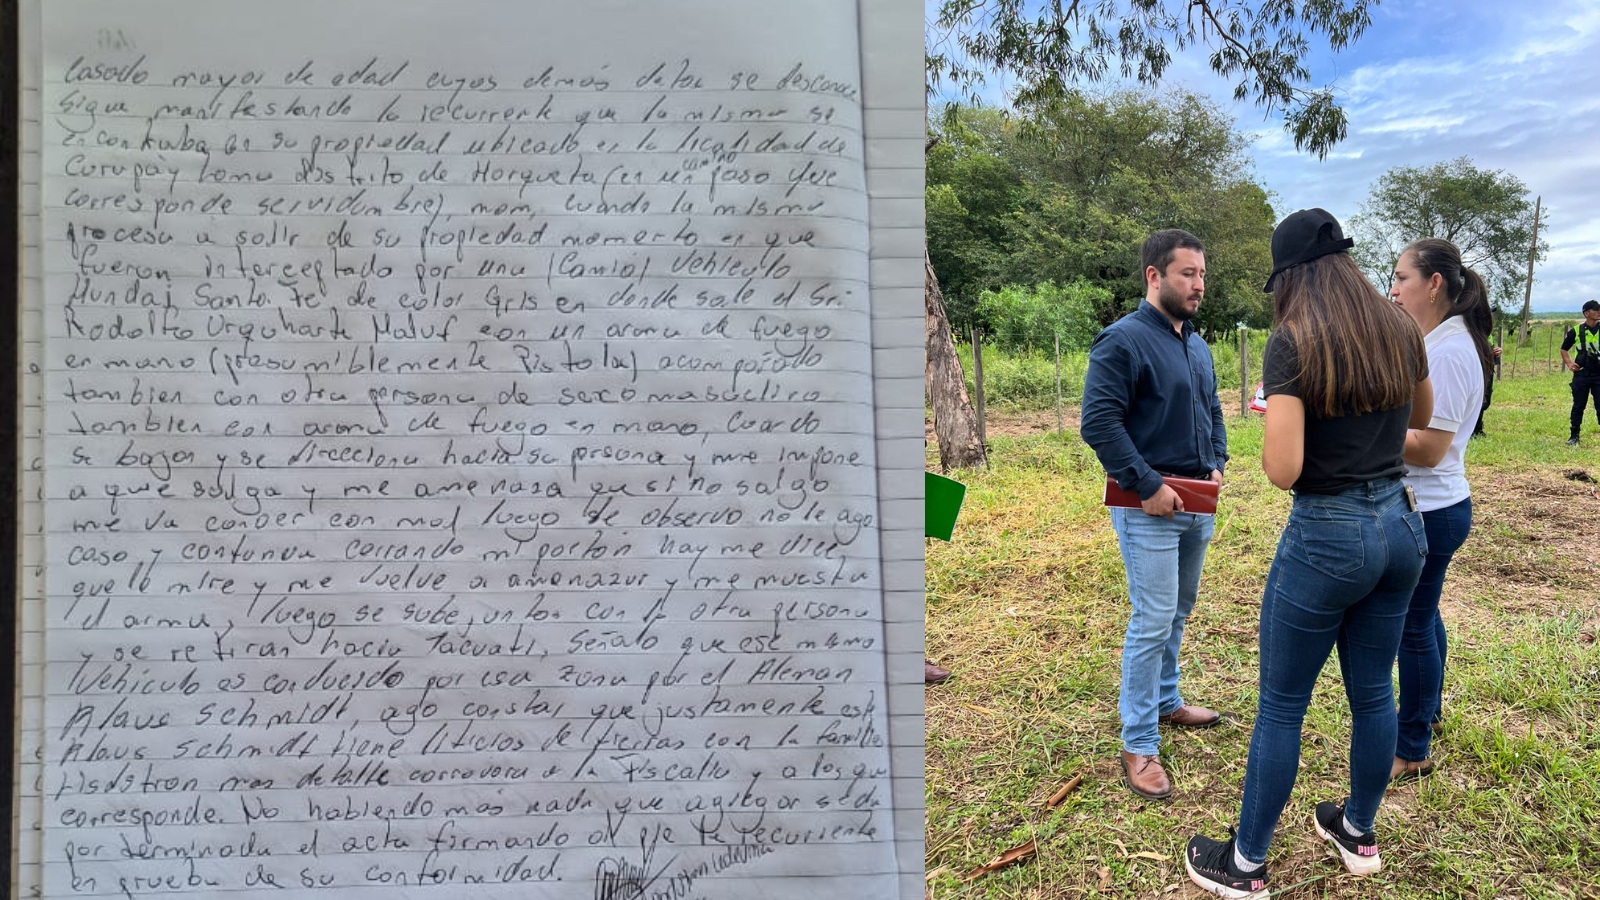 Casado mayor de edad cuyos demás datos se desconoce
Sigue manifestando la recurrente que la misma se
encontraba en su propiedad ubicado en la localidad de
Curupay loma distrito de Horqueta (en un camino paso que
corresponde servidumbre), mom, cuando la misma
procesu a salir de su propiedad momento en que
fueron interceptado por una (Camio) Vehículo
Hundai Santa fe de color Gris en donde sale el Sr.
Rodolfo Urquharte Maluf con un arma de fuego
en mano (presumiblemente Pistola) acompañado
tambien con otra persona de sexo masculino
tambien con arma de fuego en mano, cuando
se bajan y se direcciona hacia su persona y me impone
a que salga y me amenaza que si no salgo
me va conder con mal luego se observo no le ago
caso y continua cerrando mi portón hay me dice,
que le mire y me vuelve a amenazar y me muestra
el arma, luego se sube juntos con la otra persona
y se retiran hacia Tacuati, señalo que ese mismo
Vehículo es conducido por esa zona por el Aleman
Klaus Schmidt, ago constar que justamente este
Klaus Schmidt tiene liticios de tierras con la familia
mas detalle corrovora a la fiscalia y a los que
corresponde. No habiendo más nada que agregar se da
por terminada el acta firmando al pie la recurriente
en prueba de su conformidad.
PUMA